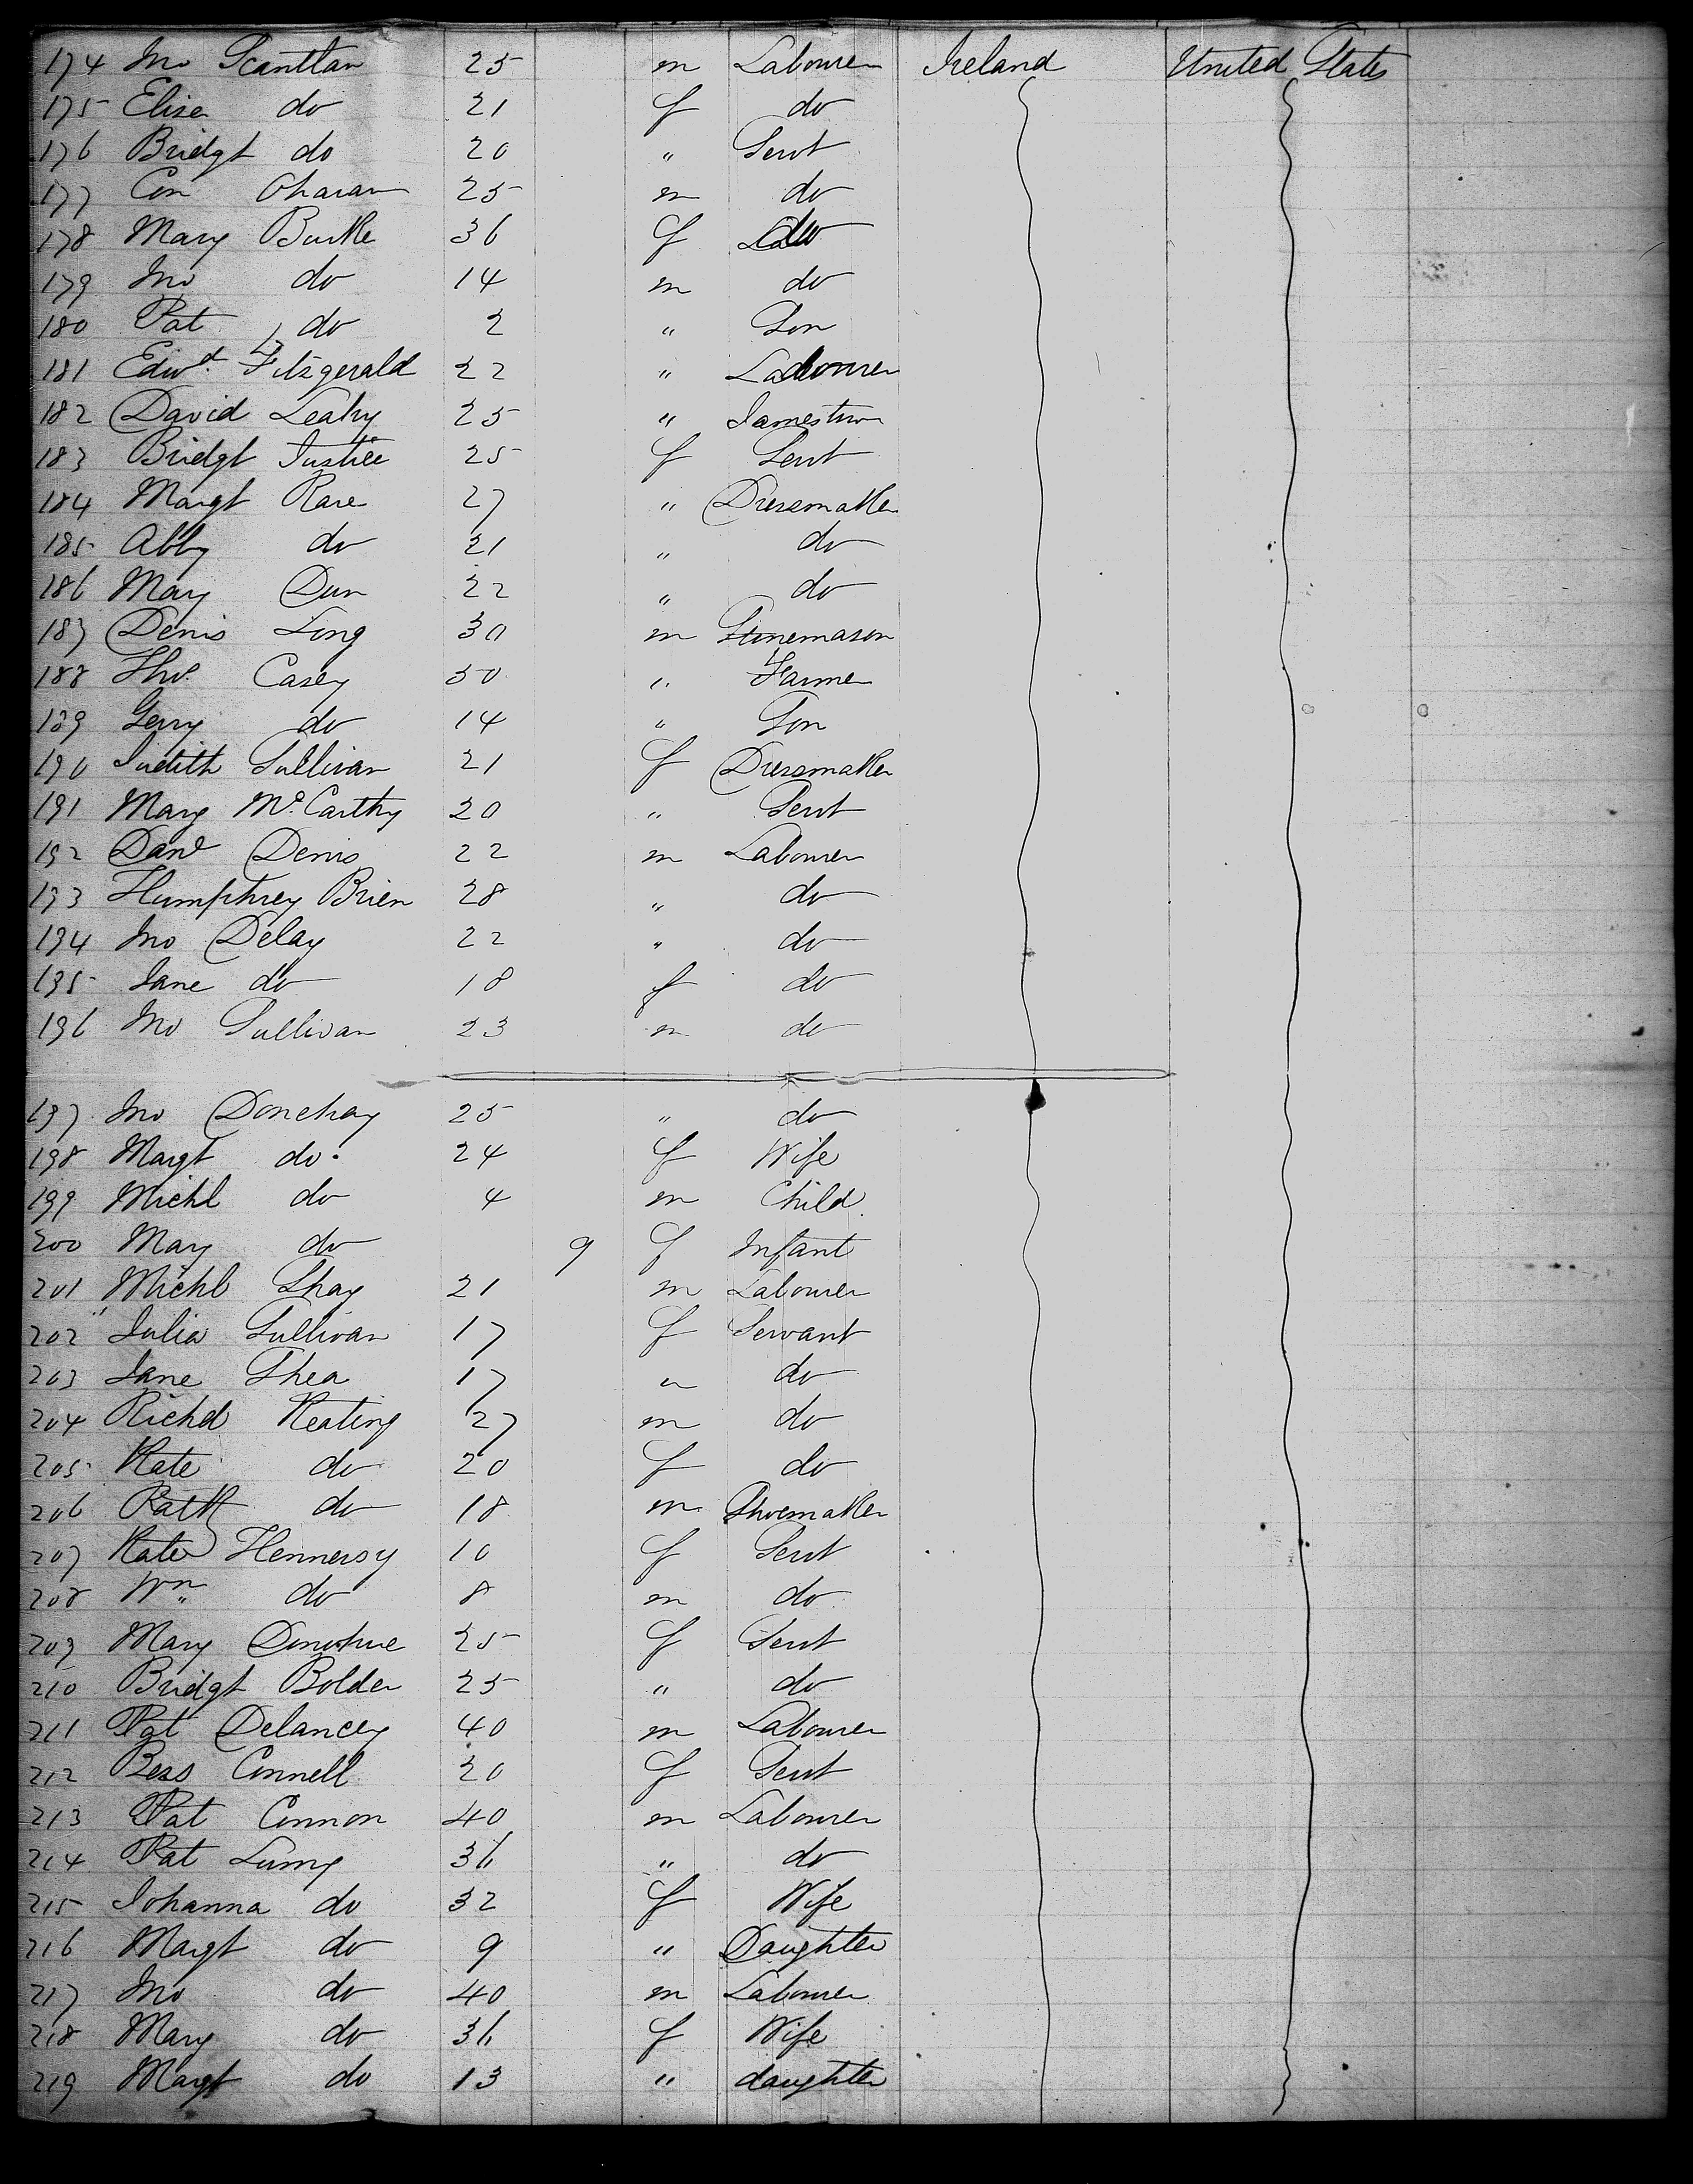 174 Jno Scanttan 25 m Labourer Ireland United States
175 Eliza do 21 f do
176 Bridgt do 20 " Servt
177 Con Oharan 25 m do
178 Mary Burke 36 f do
179 Jno do 14 m do
180 Pat do 2 " Son
181 Edwd. Fitzgerald 22 " Labourer
182 David Leahy 25 "
183 Bridgt Justice 25 f Servt
184 Margt Rare 27 " Dressmaker
185 Abby do 21 " do
186 Mary Dun 22 " do
187 Denis Long 30 m Stonemason
188 Tho. Casey 50 " Farmer
189 Gerry do 14 " Son
190 Judith Sullivan 21 f Dressmaker
191 Mary McCarthy 20 " Servt
192 Danl Denis 22 m Labourer
193 Humphrey Brien 28 " do
194 Jno Delay 22 " do
195 Jane do 18 f do
196 Jno Sullivan 23 m do
197 Jno Donehay 25 " do
198 Margt do 24 f Wife
199 Michl do 4 m Child
200 Mary do 9 f Infant
201 Michl Shay 21 m Labourer
202 " Julia Sullivan 17 f Servant
203 Jane Shea 17 " do
204 Richd Keating 27 m do
205 Kate do 20 f do
206 Patk do 18 m Shoemaker
207 Kate Hennersy 10 f Servt
208 Wm do 8 m do
209 Mary Donohue 25 f Servt
210 Bridgt Bolder 25 " do
211 Pat Delancey 40 m Labourer
212 Bess Connell 20 f Servt
213 Pat Connon 40 m Labourer
214 Pat 36 " do
215 Johanna do 32 f Wife
216 Margt do 9 " Daughter
217 Jno do 40 m Labourer
218 Mary do 36 f Wife
219 Margt do 13 " daughter